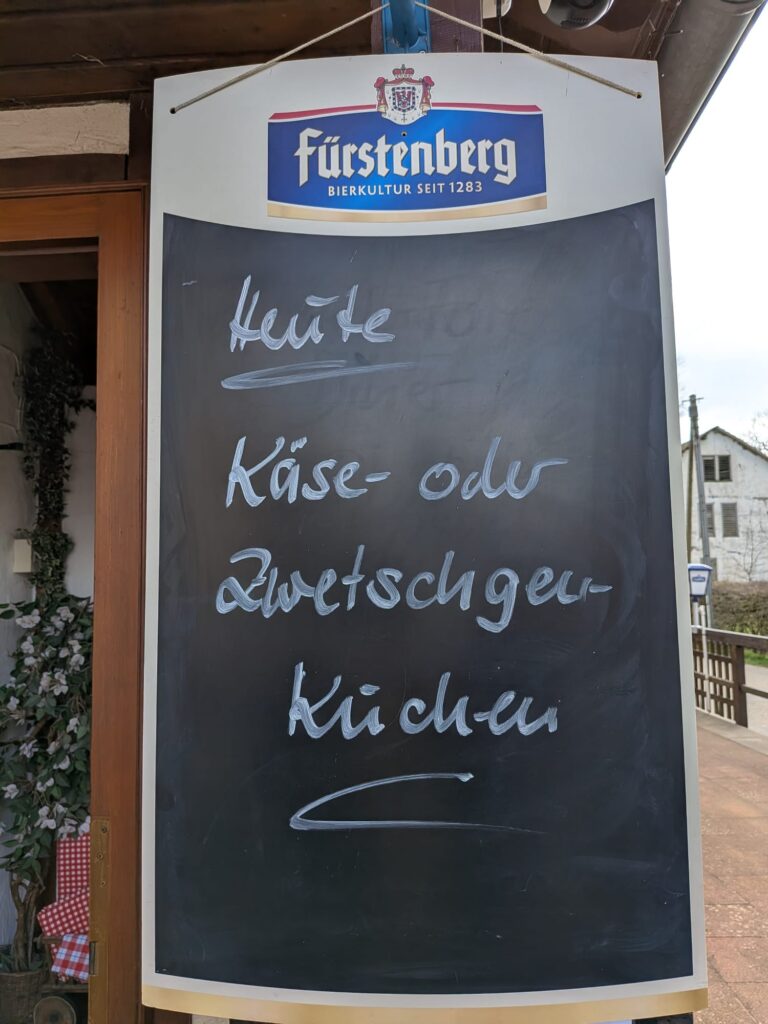 Fürstenberg
BIERKULTUR SEIT 1283
Heute
Käse- oder
Zwetschgen-
Kuchen